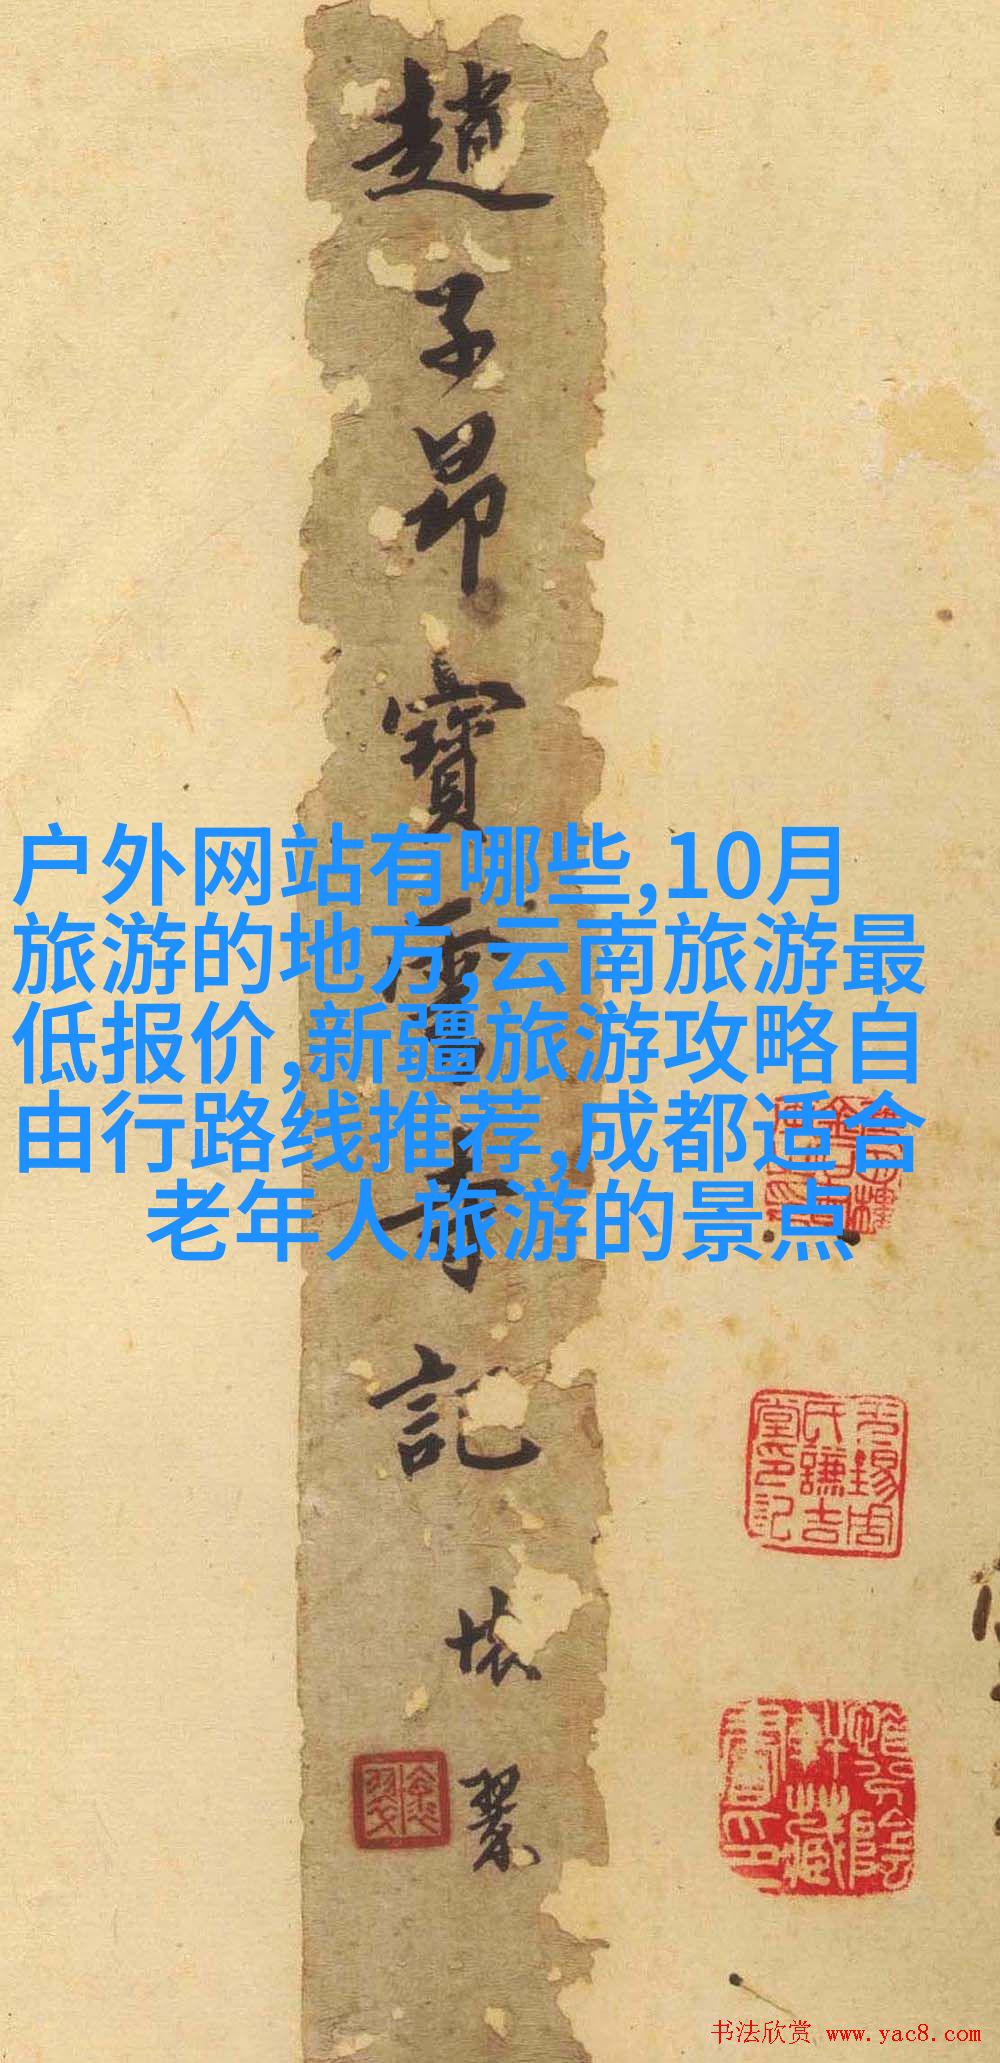 趙子昂寶雲寺記
户外网站有哪些,10月
旅游的地方,云南旅游最
低报价,新疆旅游攻略自
由行路线推荐,成都适合
老年人旅游的景点
无锡周
氏謙吉
堂印記
书法欣赏 www.yac8.com